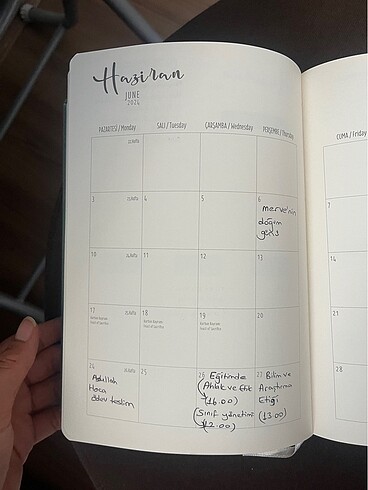 Haziran
JUNE
2024
PAZARTESİ / Monday SALI / Tuesday ÇARŞAMBA / Wednesday PERŞEMBE / Thursday CUMA / Friday
3 4 5 6 7
merve'nin
doğum
10 11 12 13 14
17 18 19 20 21
Kurban Bayramı Kurban Bayramı Kurban Bayramı
Feast of Sacrifice Feast of Sacrifice Feast of Sacrifice
24 25 26 Eğitimde 27 Bilim ve 28
Abdullah (Ahlak ve Etik Araştırma
Hoca (16.00) Etiği
ödev teslim (Sınıf yönetimi (13.00)
12.00)